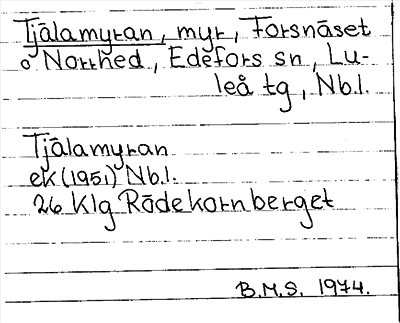 Tjålamyran, myr, Forsnäset
o Norrhed, Edefors sn, Lu-
leå tg, Nb.l.
Tjålamyran
ek (1951) Nb.l.
26 Klg Rödekornberget
B.M.S. 1974.